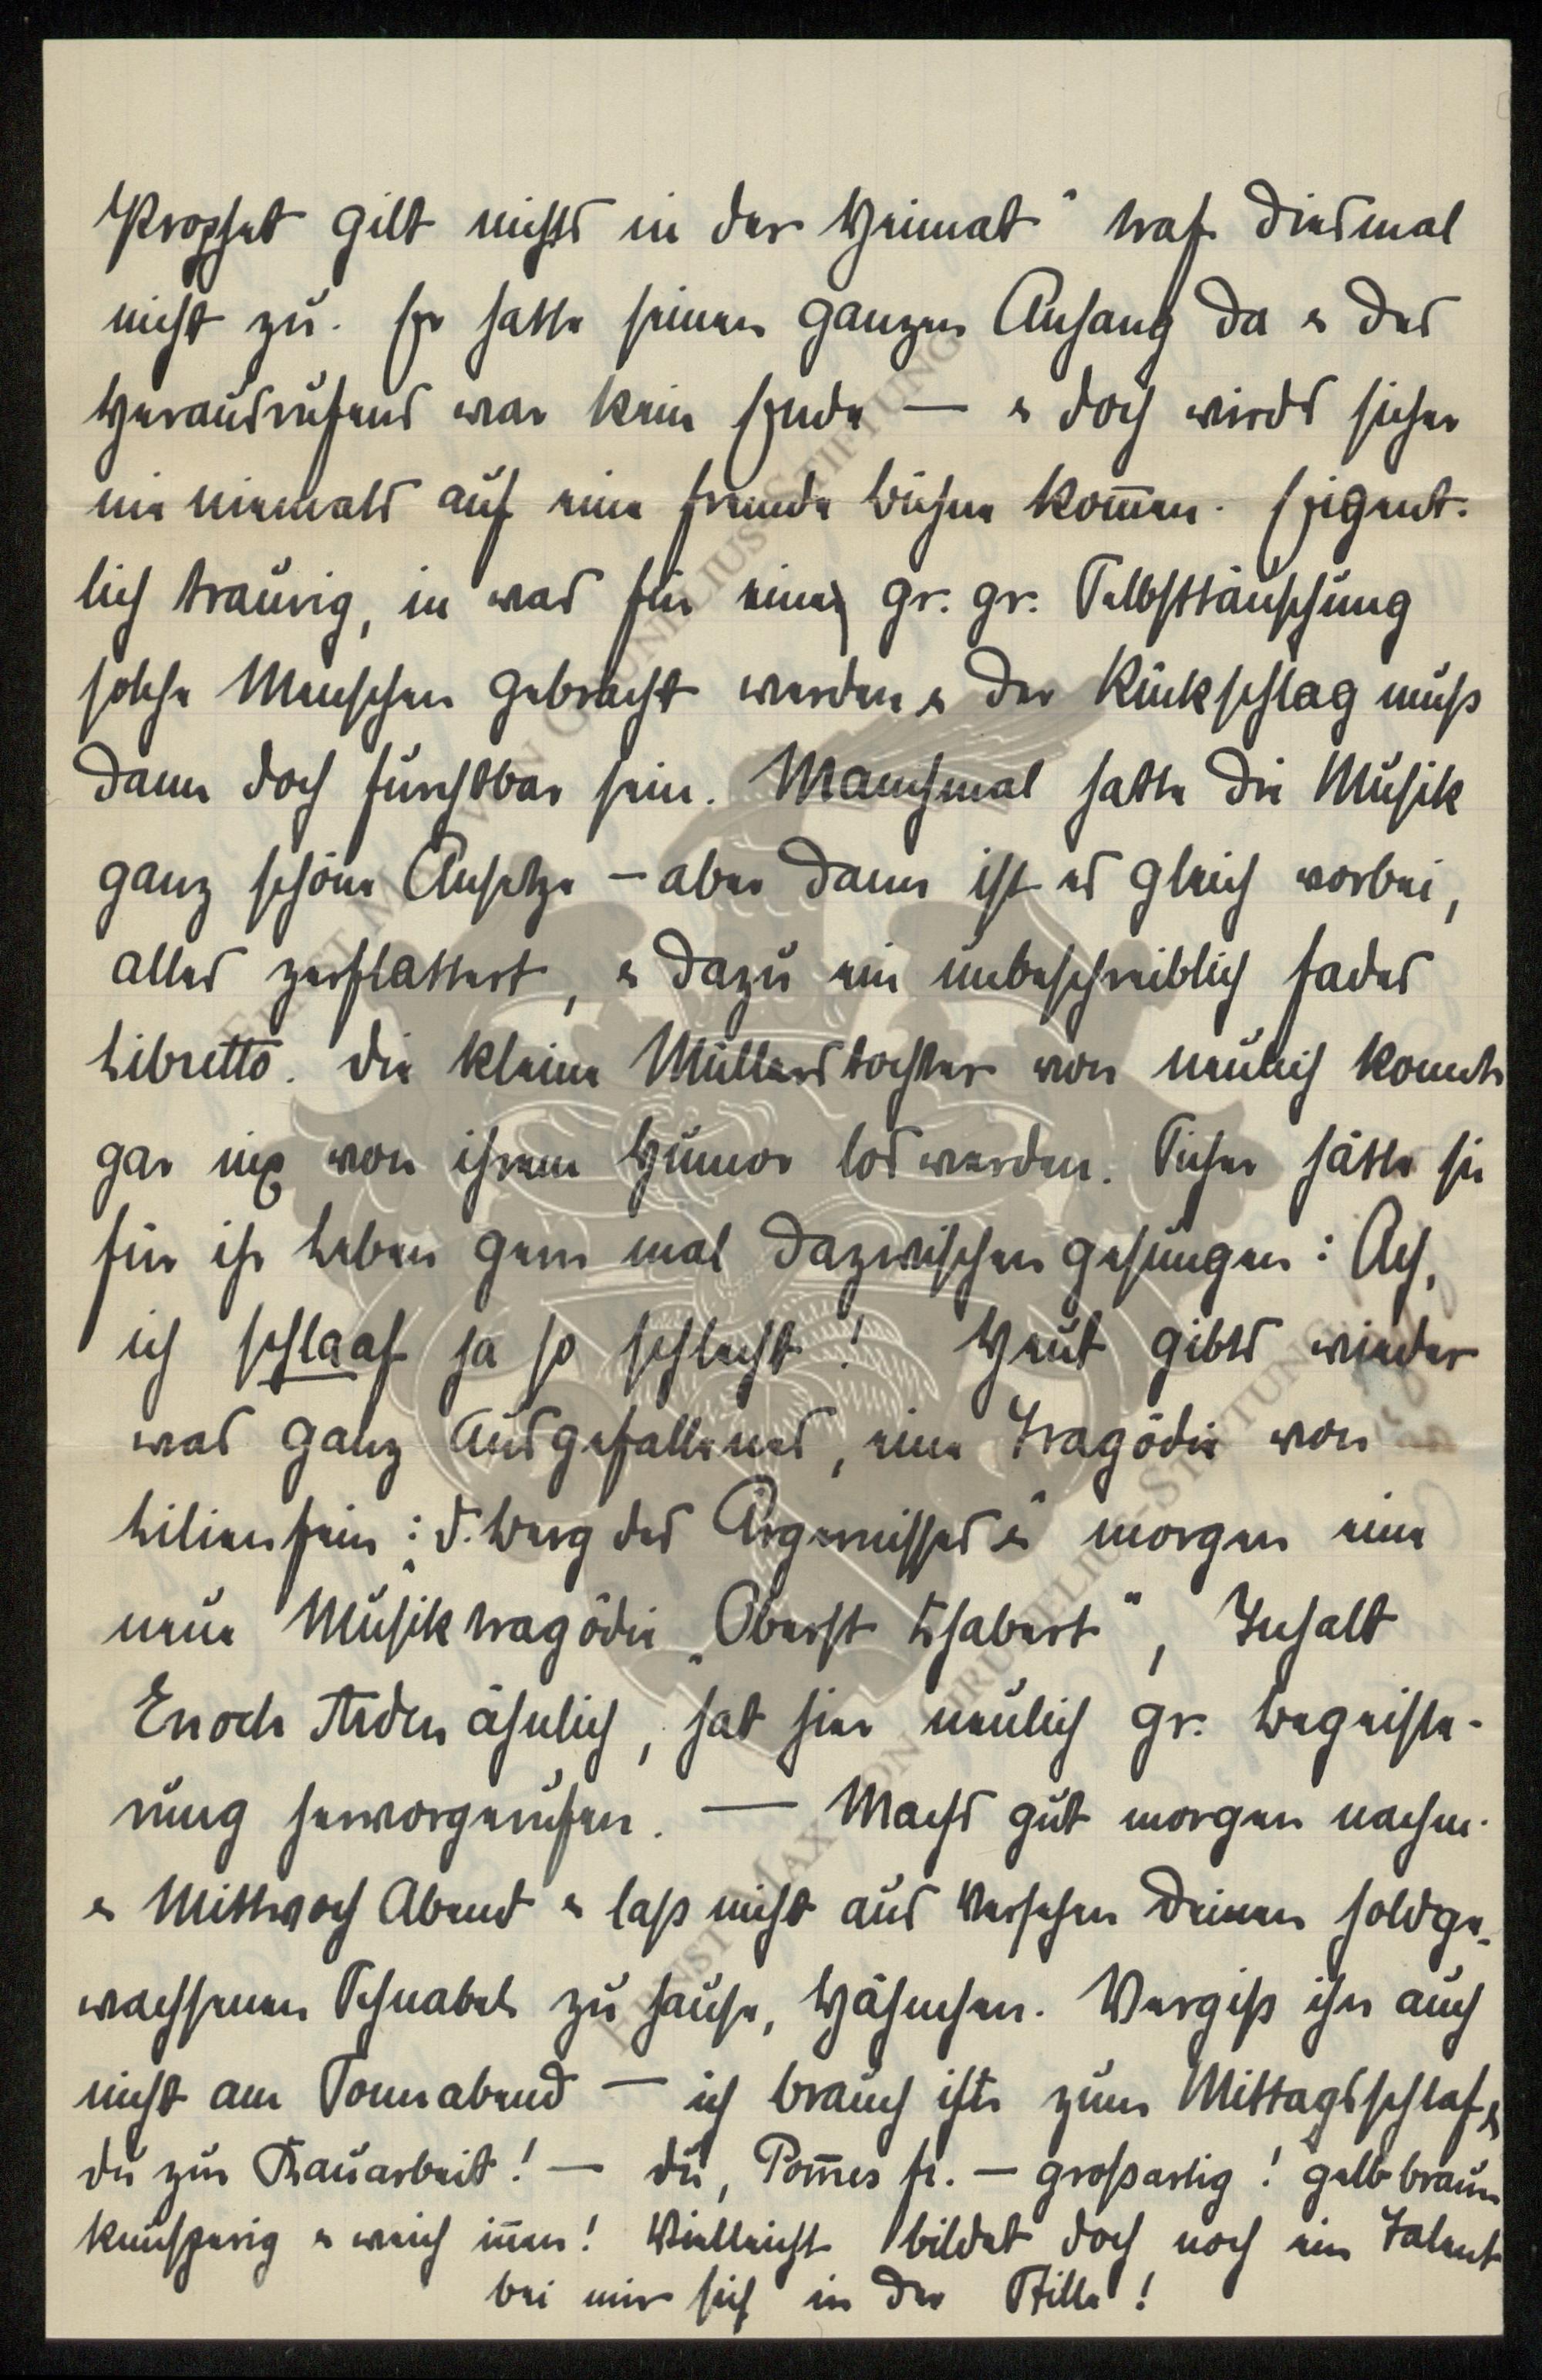 Prophet gilt nichts in der Heimat" traf diesmal
nicht zu. Er hatte seinen ganzen Anhang da & des
Herausrufens war kein Ende — & doch wirds sicher
nie niemals auf eine fremde Bühne kom̅en. Eigent-
lich traurig, in was für eine gr. gr. Selbsttäuschung
solche Menschen gebracht werden & der Rückschlag muß
dann doch furchtbar sein. Manchmal hatte die Musik
ganz schöne Ansätze – aber dann ist es gleich vorbei,
alles zerflattert, & dazu ein unbeschreiblich fades
Libretto. Die kleine Müllerstochter von neulich konnte
gar nix von ihrem Humor loswerden. Sicher hätte sie
für ihr Leben gern mal dazwischen gesungen: Ach,
ich schlaaf ja so schlecht! Heut gibts wieder
was ganz Ausgefallenes, eine Tragödie von
Lilienfein: „D. Berg des Ärgernisses" & morgen eine
neue Musiktragödie „Oberst Chabert", Inhalt
Enoch Arden ähnlich, hat hier neulich gr. Begeiste-
rung hervorgerufen. — Machs gut morgen nachm.
& Mittwoch Abend & laß nicht aus Versehen Deinen holdge-
wachsenen Schnabel zu hause, Hähnchen. Vergiß ihn auch
nicht am Sonnabend — ich brauch ihn zum Mittagsschlaf &
du zur Kauarbeit! — du, Pom̅es fr. – großartig! gelbbraun
knusperig & weich in̅en! Vielleicht bildet doch noch ein Talent
bei mir sich in der Stille!
ERNST MAX VON GRUNELIUS-STIFTUNG
ERNST MAX VON GRUNELIUS-STIFTUNG